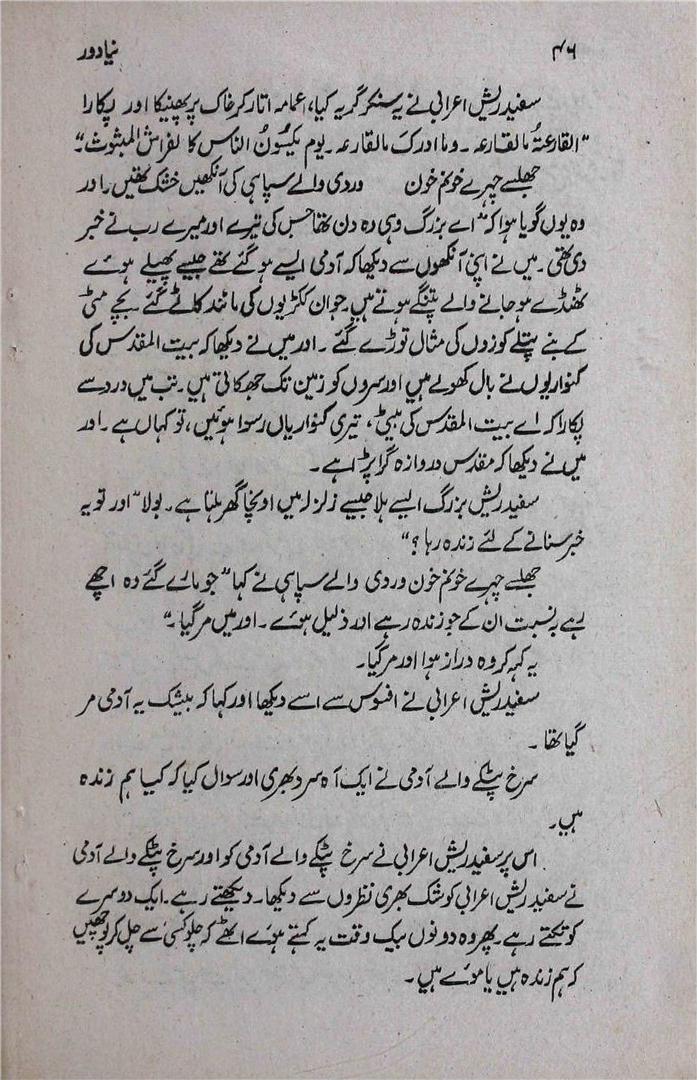 ۴۶ نیا دور
سفید ریش اعرابی نے یہ سنکر گریہ کیا، عمامہ اتار کر خاک پر پھینکا اور پکارا
"القارعۃُ مالقارعہ۔ وما ادرک مالقارعہ۔ یوم یکسُونُ الناس کا لفراش المبثوث"۔
جھلسے چہرے خونم خون وردی والے سپاہی کی آنکھیں خشک تھیں۔ اور
وہ یوں گویا ہوا کہ "اے بزرگ وہی وہ دن تھا جس کی تیرے اور میرے رب نے خبر
دی تھی۔ میں نے اپنی آنکھوں سے دیکھا کہ آدمی ایسے ہو گئے تھے جیسے پھیلے ہوئے
ٹھنڈے ہو جانے والے پتنگے ہوتے ہیں۔ جوان ککڑیوں کی مانند کاٹے گئے بچے مٹی
کے بنے پتلے کوزوں کی مثال توڑے گئے۔ اور میں نے دیکھا کہ بیت المقدس کی
کنواریوں نے بال کھولے ہیں اور سروں کو زمین تک جھکاتی ہیں۔ تب میں درد سے
پکارا کہ اے بیت المقدس کی بیٹی، تیری کنواریاں رسوا ہوئیں، تو کہاں ہے۔ اور
میں نے دیکھا کہ مقدس دروازہ گرا پڑا ہے۔
سفید ریش بزرگ ایسے ہلا جیسے زلزلہ میں اونچا گھر ہلتا ہے۔ بولا "اور تو یہ
خبر سنانے کے لئے زندہ رہا؟"
جھلسے چہرے خونم خون وردی والے سپاہی نے کہا "جو مارے گئے وہ اچھے
رہے بہ نسبت ان کے جو زندہ رہے اور ذلیل ہوئے۔ اور میں مر گیا۔"
یہ کہہ کر وہ دراز ہوا اور مر گیا۔
سفید ریش اعرابی نے افسوس سے اسے دیکھا اور کہا کہ بیشک یہ آدمی مر
گیا تھا۔
سرخ پٹکے والے آدمی نے ایک آہ سرد بھری اور سوال کیا کہ کیا ہم زندہ
ہیں۔
اس پر سفید ریش اعرابی نے سرخ پٹکے والے آدمی کو اور سرخ پٹکے والے آدمی
نے سفید ریش اعرابی کو شک بھری نظروں سے دیکھا۔ دیکھتے رہے۔ ایک دوسرے
کو تکتے رہے۔ پھر وہ دونوں بیک وقت یہ کہتے ہوئے اٹھے کہ چلو کسی سے چل کر پوچھیں
کہ ہم زندہ ہیں یا موئے ہیں۔